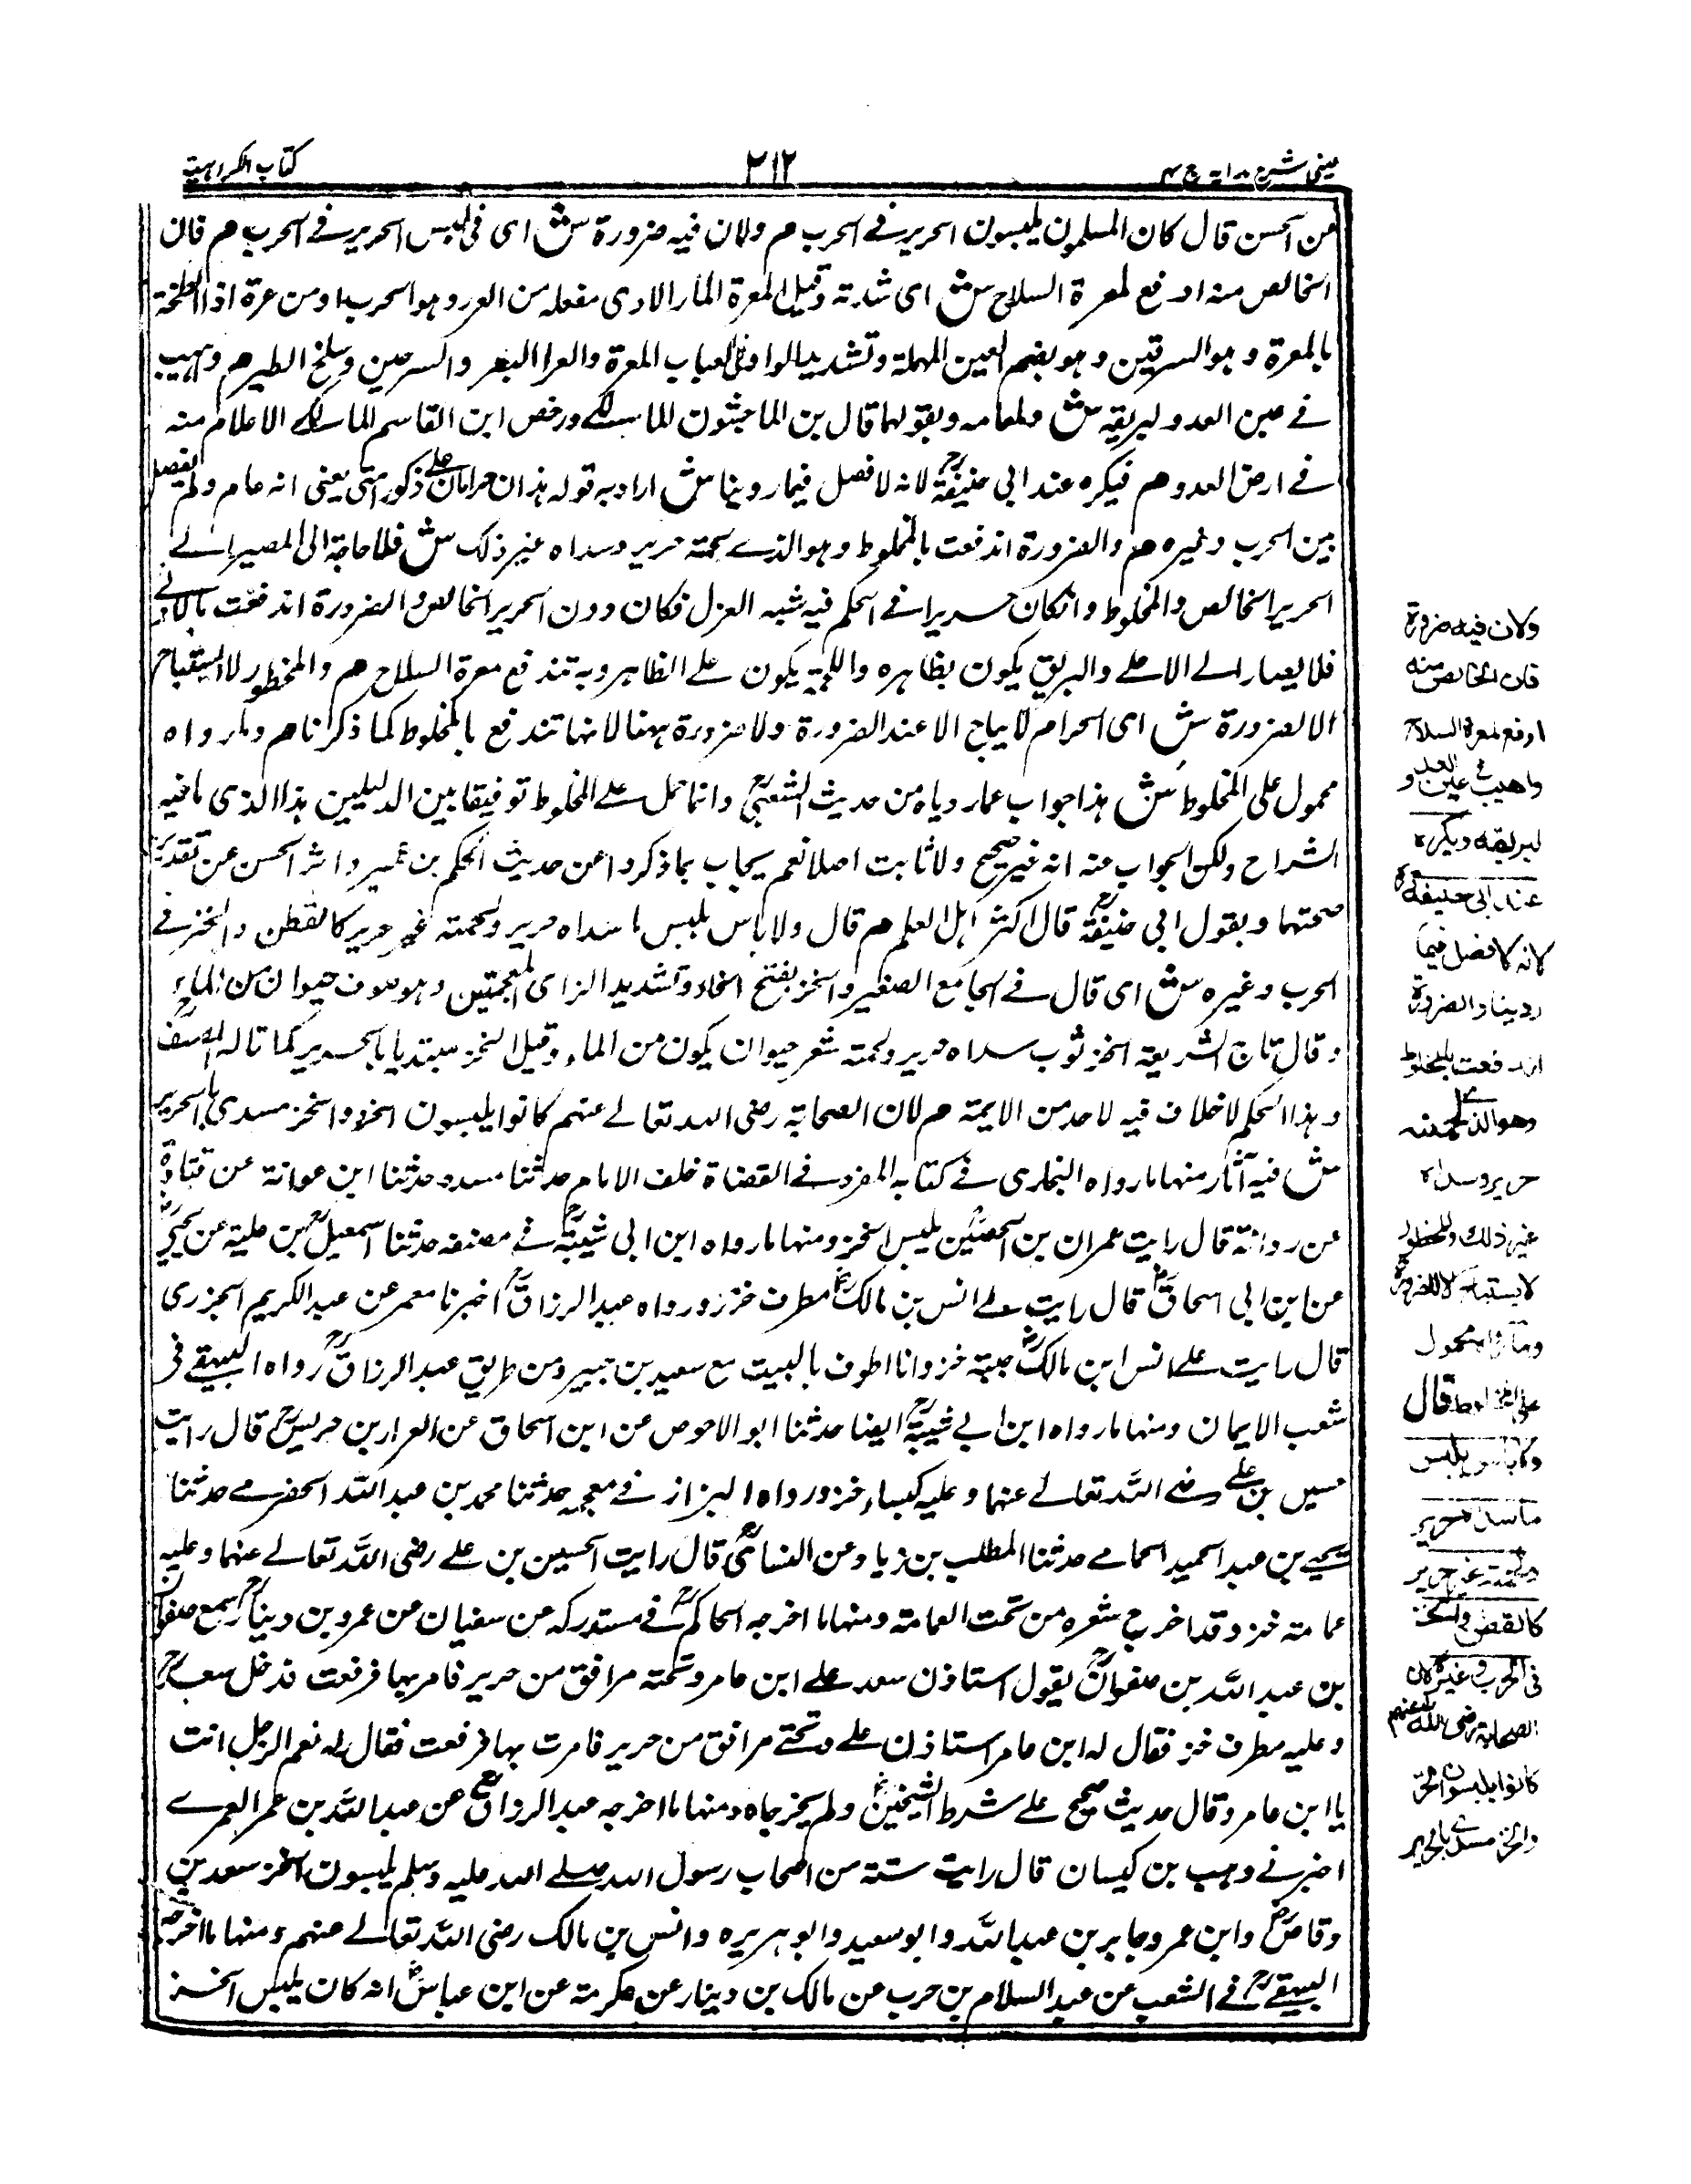 عینی شرح ہدایہ ج ۴
۲۱۲
کتاب الکراہیة
عن الحسن قال کان المسلمون یلبسون الحریر فے الحرب م ولان فیه ضرورة ش ای فی لبس الحریر فے الحرب م فان
الخالص منه ادفع لمعرة السلاح ش ای شدته وقیل المعرة الاذی مفعلة من العر وهو الجرب او من عرة اذا لطخة
بالمعرة وهو السرقین وهو بضم العین المهملة وتشدید وفی العباب المعرة والعر البعر والسرجین وسلح الطیر م واهیب
فے عین العدو لبریقه ش ولمعانه وبقولهما قال بن الماجشون المالکے ورخص ابن القاسم المالکے الاعلام منه
فے ارض العدو م فیکره عند ابی حنیفة لانه لا فصل فیما روینا ش اراد به قوله هذان حرامان علی ذکور امتی یعنی انه عام ولم یفصل
بین الحرب وغیره م والضرورة اندفعت بالمخلوط وهو الذے لحمته حریر وسداه غیر ذلک ش فلا حاجة الی المصیر الے
الحریر الخالص والمخلوط وان کان حریرا فے الحکم فیه شبه الغزل فکان دون الحریر الخالص والضرورة اندفعت بالادنے
فلا یصار الے الاعلے والبریق یکون بظاهره واللحمة یکون علے الظاهر وبه تندفع معرة السلاح م والمحظور لا یستباح
الا لضرورة ش ای الحرام لا یباح الا عند الضرورة ولا ضرورة ههنا لانها تندفع بالمخلوط کما ذکرنا م وما رواه
محمول علی المخلوط ش هذا جواب عما رویاه من حدیث الشعبی وانما حمل علے المخلوط توفیقا بین الدلیلین هذا الذی ما فیه
الشراح ولکن الجواب عنه انه غیر صحیح ولا ثابت اصلا نعم یجاب بما ذکروا عن حدیث الحکم بن عمیر واثر الحسن عن تقدیر
صحتهما وبقول ابی حنیفة قال اکثر اهل العلم م قال ولا باس بلبس ما سداه حریر ولحمته غیر حریر کالقطن والخز فے
الحرب وغیره ش ای قال فے الجامع الصغیر والخز بفتح الخاء وتشدید الزای المعجمتین وهو صوف حیوان من الماء
وقال تاج الشریعة الخز ثوب سداه حریر ولحمته شعر حیوان یکون من الماء وقیل الخز بالحریر کما قاله المصنف
وهذا الحکم لا خلاف فیه لاحد من الایمة م لان الصحابة رضی الله تعالے عنهم کانوا یلبسون الخز والخز مسدی بالحریر
ش فیه آثار منها ما رواه البخاری فے کتابه المفرد فے القضاة خلف الامام حدثنا مسدد حدثنا ابن عوانة عن قتادة
عن قال رایت عمران بن الحصین یلبس الخز ومنها ما رواه ابن ابی شیبة فے مصنفه حدثنا اسمعیل بن علیة عن یحیی
عن ابن ابی اسحاق قال رایت علے انس بن مالک مطرف خز ورواه عبد الرزاق اخبرنا معمر عن عبد الکریم الجزری
قال رایت علے انس ابن مالک جبة خز وانا اطوف بالبیت مع سعید بن جبیر ومن طریق عبد الرزاق رواه البیهقے فی
شعب الایمان ومنها ما رواه ابن ابے شیبة ایضا حدثنا ابو الاحوص عن ابن اسحاق عن العرار بن حریس قال رایت
حسین بن علی رضے الله تعالے عنهما وعلیه کساء خز ورواه البزاز فے معجمه حدثنا محمد بن عبد الله الحضرمے حدثنا
یحیے بن عبد الحمید الحمامے حدثنا المطلب بن زیاد عن قال رایت الحسین بن علے رضی الله تعالے عنهما وعلیه
عمامة خز وقد اخرج شعره من تحت العمامة ومنها ما اخرجه الحاکم فے مستدرکه عن سفیان عن عمرو بن دینار سمع صفوان
بن عبد الله بن صفوان یقول استاذن سعد علے ابن عامر وتحته مرافق من حریر فامر بها فرفعت فدخل سعد
وعلیه مطرف خز فقال له ابن عامر استاذن علے وتحتے مرافق من حریر فامرت بها فرفعت فقال له نعم الرجل انت
یا ابن عامر وقال حدیث صحیح علے شرط الشیخین ولم یخرجاه ومنها ما اخرجه عبد الرزاق عن عبد الله بن عمر العمرے
اخبرنے وهب بن کیسان قال رایت ستة من اصحاب رسول الله صلے الله علیه وسلم یلبسون الخز سعد بن
وقاص وابن عمر وجابر بن عبد الله وابو سعید وابو هریره وانس بن مالک رضی الله تعالے عنهم ومنها ما اخرجه
البیهقے فے الشعب عن عبد السلام بن حرب عن مالک بن دینار عن عکرمة عن ابن عباس انه کان یلبس الخز
ولان فیه ضرورة
فان الخالص منه
ادفع لمعرة السلاح
واهیب فی عین العدو
لبریقه ویکره
عند ابی حنیفة
لانه لا فصل فیما
روینا والضرورة
اندفعت بالمخلوط
وهو الذی لحمته
حریر وسداه
غیر ذلک والمحظور
لا یستباح الا لضرورة
وما رواه محمول
علی المخلوط قال
ولا باس بلبس
ما سداه حریر
ولحمته غیر حریر
کالقطن والخز
فی الحرب وغیره لان
الصحابة رضی الله عنهم
کانوا یلبسون الخز
والخز مسدی بالحریر